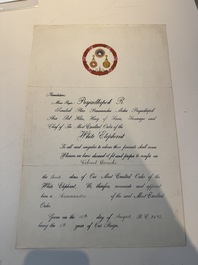 Translation
Maha Raja Prajadhipok R.
Somdech Phra Paramindra Maha Prajadhipok
King of Siam, Sovereign and
Chief of The Most Exalted Order of the
White Elephant
To all and singular to whom these presents shall come
Whereas we have deemed it fit and proper to confer on
the Third class of Our Most Exalted Order of the
White Elephant. We therefore nominate and appoint
him a Commander of the said Most Exalted
Order.
Given on the day of August B.E.
being the year of Our Reign.